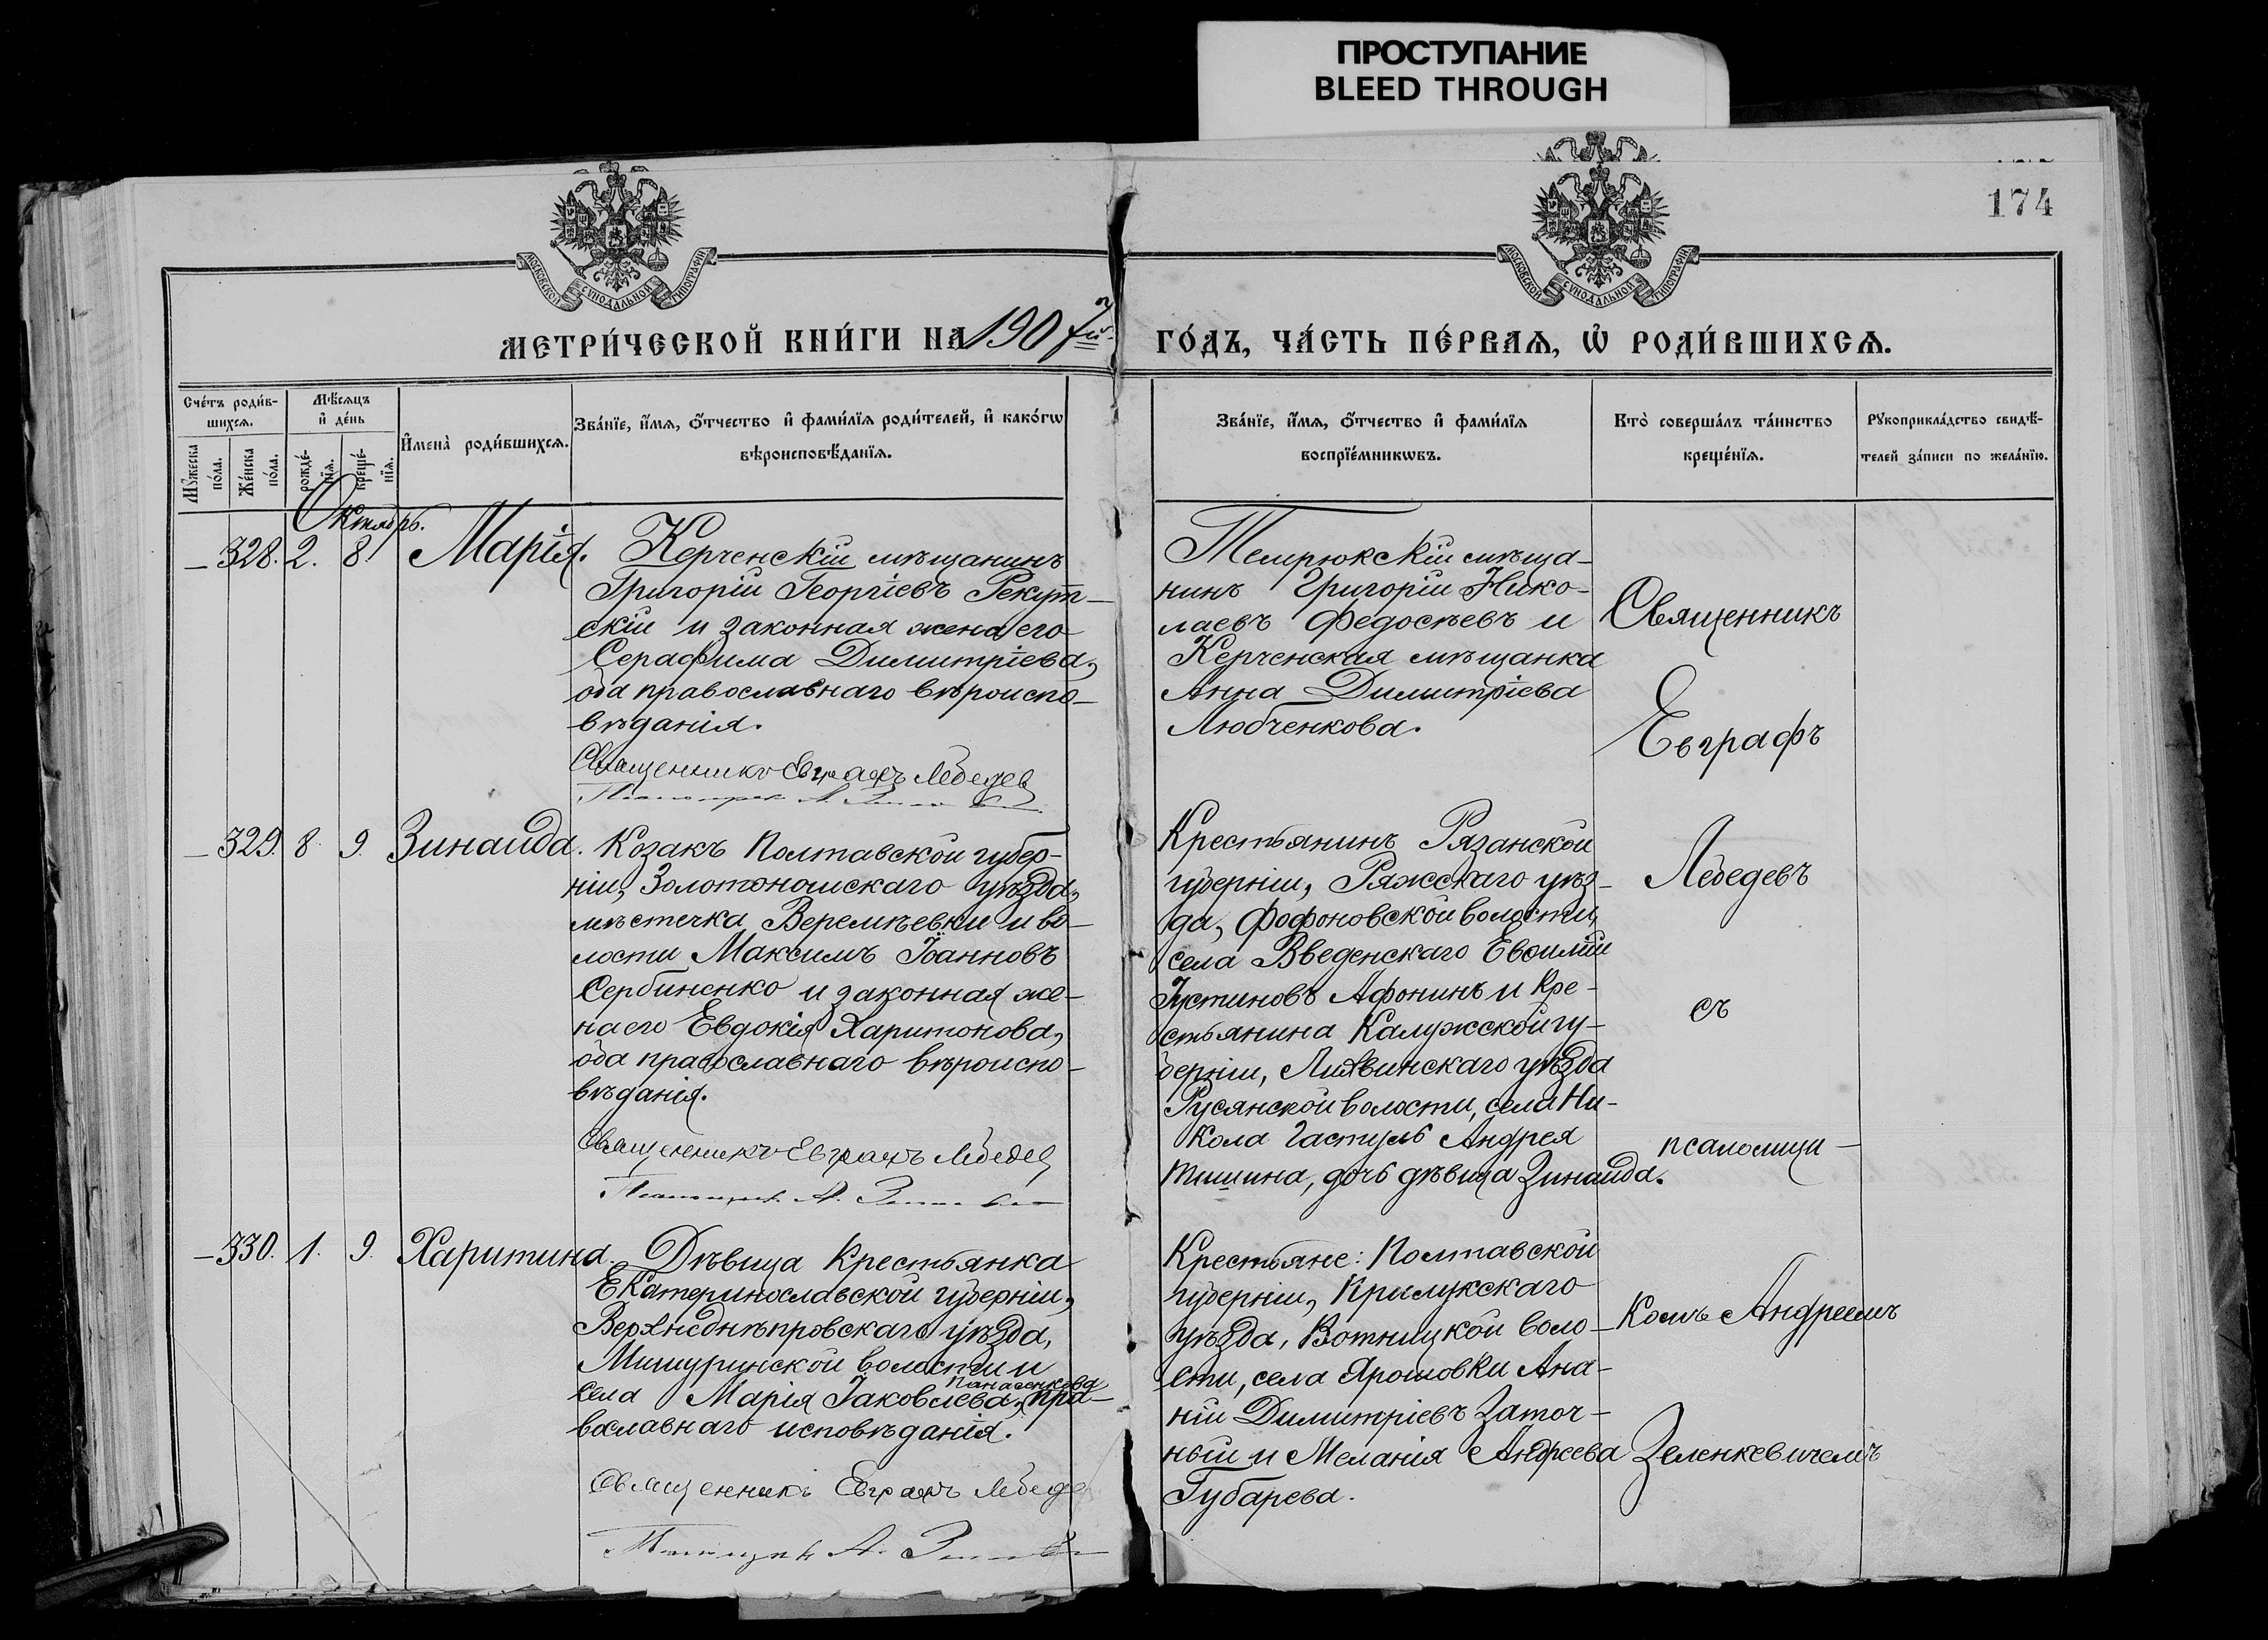 ПРОСТУПАНИЕ
BLEED THROUGH
174
МОСКОВСКОЙ СУНОДАЛЬНОЙ ТИПОГРАФІИ
МОСКОВСКОЙ СУНОДАЛЬНОЙ ТИПОГРАФІИ
МЕТРИ́ЧЕСКОЙ КНИ́ГИ НА 1907й
ГО́ДЪ, ЧА́СТЬ ПЕ́РВАѦ, Ѡ҆ РОДИ́ВШИХСѦ.
Сче́тъ роди́в-
шихсѧ.
Мѣ́сѧцъ
и҆ де́нь
Мꙋ́жеска
по́ла.
Же́нска
по́ла.
рожде́-
нїѧ.
креще́-
нїѧ.
И҆мена̀ роди́вшихсѧ.
Зва́нїе, и҆́мѧ, ѻ҆́тчество и҆ фами́лїѧ роди́телей, и҆ како́гѡ
вѣроисповѣ́данїѧ.
Зва́нїе, и҆́мѧ, ѻ҆́тчество и҆ фами́лїѧ
воспрїе́мникѡвъ.
Кто̀ соверша́лъ та́инство
креще́нїѧ.
Рꙋкоприкла́дство свидѣ́-
телей за́писи по жела́нїю.
Октябрь.
— 328. 2. 8. Марія.
Керченскій мѣщанинъ
Григорій Георгіевъ Рекут-
скій и законная жена его
Серафима Димитріева,
оба православнаго вѣроиспо-
вѣданія.
Священникъ Евграфъ Лебедев
Темрюкскій мѣща-
нинъ Григорій Нико-
лаевъ Федосѣевъ и
Керченская мѣщанка
Анна Димитріева
Любченкова.
Священникъ
Евграфъ
Лебедевъ
съ
псаломщи-
комъ Андреемъ
Зеленкевичемъ
— 329. 8. 9. Зинаида.
Козакъ Полтавской губер-
ніи, Золотоношскаго уѣзда,
мѣстечка Веремѣевки и во-
лости Максимъ Іоанновъ
Сербиненко и законная же-
на его Евдокія Харитонова,
оба православнаго вѣроиспо-
вѣданія.
Священникъ Евграфъ Лебедев
Крестьянинъ Рязанской
губерніи, Ряжскаго уѣз-
да, Фофоновской волости,
села Введенскаго Евфимій
Іустиновъ Афонинъ и кре-
стьянина Калужской гу-
берніи, Лихвинскаго уѣзда
Русянской волости, села Ни-
кола Гастунь Андрея
Тишина, дочь дѣвица Зинаида.
— 330. 1. 9. Харитина.
Дѣвица крестьянка
Екатеринославской губерніи,
Верхнеднѣпровскаго уѣзда,
Мишуринской волости и
села Марія Іаковлева Панасенкова, пра-
вославнаго исповѣданія.
Священникъ Евграфъ Лебедев
Крестьяне: Полтавской
губерніи, Прилукскаго
уѣзда, воло-
сти, села Ярошовки Ана-
ній Димитріевъ Заточ-
ный и Меланія Андреева
Губарева.